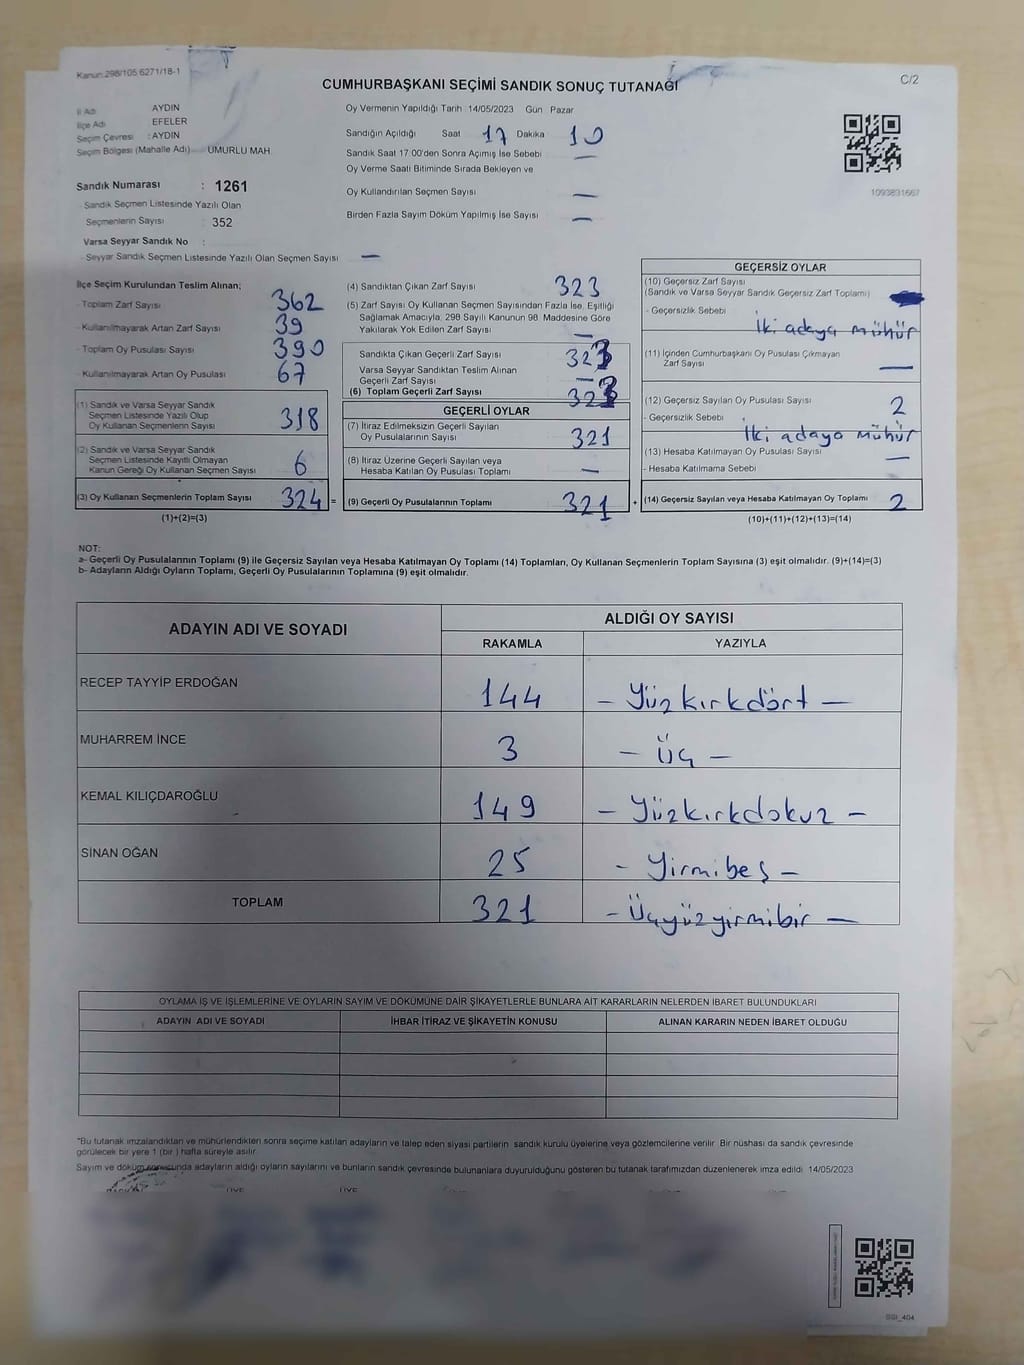 Kanun:298/105 6271/18-1
C/2
CUMHURBAŞKANI SEÇİMİ SANDIK SONUÇ TUTANAĞI
İl Adı AYDIN
İlçe Adı EFELER
Seçim Çevresi : AYDIN
Seçim Bölgesi (Mahalle Adı) UMURLU MAH.
Sandık Numarası : 1261
- Sandık Seçmen Listesinde Yazılı Olan
Seçmenlerin Sayısı : 352
Varsa Seyyar Sandık No :
- Seyyar Sandık Seçmen Listesinde Yazılı Olan Seçmen Sayısı —
Oy Vermenin Yapıldığı Tarih 14/05/2023 Gün Pazar
Sandığın Açıldığı Saat 17 Dakika 10
Sandık Saat 17:00'den Sonra Açılmış İse Sebebi —
Oy Verme Saati Bitiminde Sırada Bekleyen ve
Oy Kullandırılan Seçmen Sayısı —
Birden Fazla Sayım Döküm Yapılmış İse Sayısı —
1093831667
İlçe Seçim Kurulundan Teslim Alınan;
- Toplam Zarf Sayısı 362
- Kullanılmayarak Artan Zarf Sayısı 39
- Toplam Oy Pusulası Sayısı 390
- Kullanılmayarak Artan Oy Pusulası 67
(1) Sandık ve Varsa Seyyar Sandık
Seçmen Listesinde Yazılı Olup
Oy Kullanan Seçmenlerin Sayısı 318
(2) Sandık ve Varsa Seyyar Sandık
Seçmen Listesinde Kayıtlı Olmayan
Kanun Gereği Oy Kullanan Seçmen Sayısı 6
(3) Oy Kullanan Seçmenlerin Toplam Sayısı 324 =
(1)+(2)=(3)
(4) Sandıktan Çıkan Zarf Sayısı 323
(5) Zarf Sayısı Oy Kullanan Seçmen Sayısından Fazla İse, Eşitliği
Sağlamak Amacıyla, 298 Sayılı Kanunun 98. Maddesine Göre
Yakılarak Yok Edilen Zarf Sayısı —
Sandıkta Çıkan Geçerli Zarf Sayısı 323
Varsa Seyyar Sandıktan Teslim Alınan
Geçerli Zarf Sayısı —
(6) Toplam Geçerli Zarf Sayısı 323
GEÇERLİ OYLAR
(7) İtiraz Edilmeksizin Geçerli Sayılan
Oy Pusulalarının Sayısı 321
(8) İtiraz Üzerine Geçerli Sayılan veya
Hesaba Katılan Oy Pusulası Toplamı —
(9) Geçerli Oy Pusulalarının Toplamı 321 +
GEÇERSİZ OYLAR
(10) Geçersiz Zarf Sayısı
(Sandık ve Varsa Seyyar Sandık Geçersiz Zarf Toplamı)
- Geçersizlik Sebebi İki adaya mühür
(11) İçinden Cumhurbaşkanı Oy Pusulası Çıkmayan
Zarf Sayısı —
(12) Geçersiz Sayılan Oy Pusulası Sayısı 2
- Geçersizlik Sebebi İki adaya mühür
(13) Hesaba Katılmayan Oy Pusulası Sayısı —
- Hesaba Katılmama Sebebi
(14) Geçersiz Sayılan veya Hesaba Katılmayan Oy Toplamı 2
(10)+(11)+(12)+(13)=(14)
NOT:
a- Geçerli Oy Pusulalarının Toplamı (9) ile Geçersiz Sayılan veya Hesaba Katılmayan Oy Toplamı (14) Toplamları, Oy Kullanan Seçmenlerin Toplam Sayısına (3) eşit olmalıdır. (9)+(14)=(3)
b- Adayların Aldığı Oyların Toplamı, Geçerli Oy Pusulalarının Toplamına (9) eşit olmalıdır.
ADAYIN ADI VE SOYADI
ALDIĞI OY SAYISI
RAKAMLA YAZIYLA
RECEP TAYYİP ERDOĞAN 144 — Yüzkırkdört —
MUHARREM İNCE 3 — Üç —
KEMAL KILIÇDAROĞLU 149 — Yüzkırkdokuz —
SİNAN OĞAN 25 - Yirmibeş —
TOPLAM 321 - Üçyüzyirmibir —
OYLAMA İŞ VE İŞLEMLERİNE VE OYLARIN SAYIM VE DÖKÜMÜNE DAİR ŞİKAYETLERLE BUNLARA AİT KARARLARIN NELERDEN İBARET BULUNDUKLARI
ADAYIN ADI VE SOYADI İHBAR İTİRAZ VE ŞİKAYETİN KONUSU ALINAN KARARIN NEDEN İBARET OLDUĞU
*Bu tutanak imzalandıktan ve mühürlendikten sonra seçime katılan adayların ve talep eden siyasi partilerin sandık kurulu üyelerine veya gözlemcilerine verilir. Bir nüshası da sandık çevresinde
görülecek bir yere 1 (bir ) hafta süreyle asılır.
Sayım ve döküm sonucunda adayların aldığı oyların sayılarını ve bunların sandık çevresinde bulunanlara duyurulduğunu gösteren bu tutanak tarafımızdan düzenlenerek imza edildi. 14/05/2023